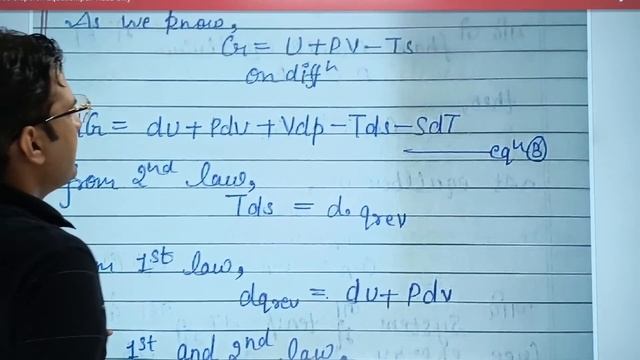 As we know,
G = U + PV - TS
on diffⁿ
dG = dU + PdV + Vdp - Tds - SdT
eqⁿ (B)
from 2nd law,
Tds = d.qrev
1st law,
dqrev = dU + Pdv
1st and 2nd law,